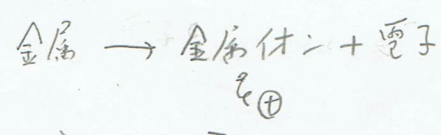 金属 → 金属イオン + 電子
⊕